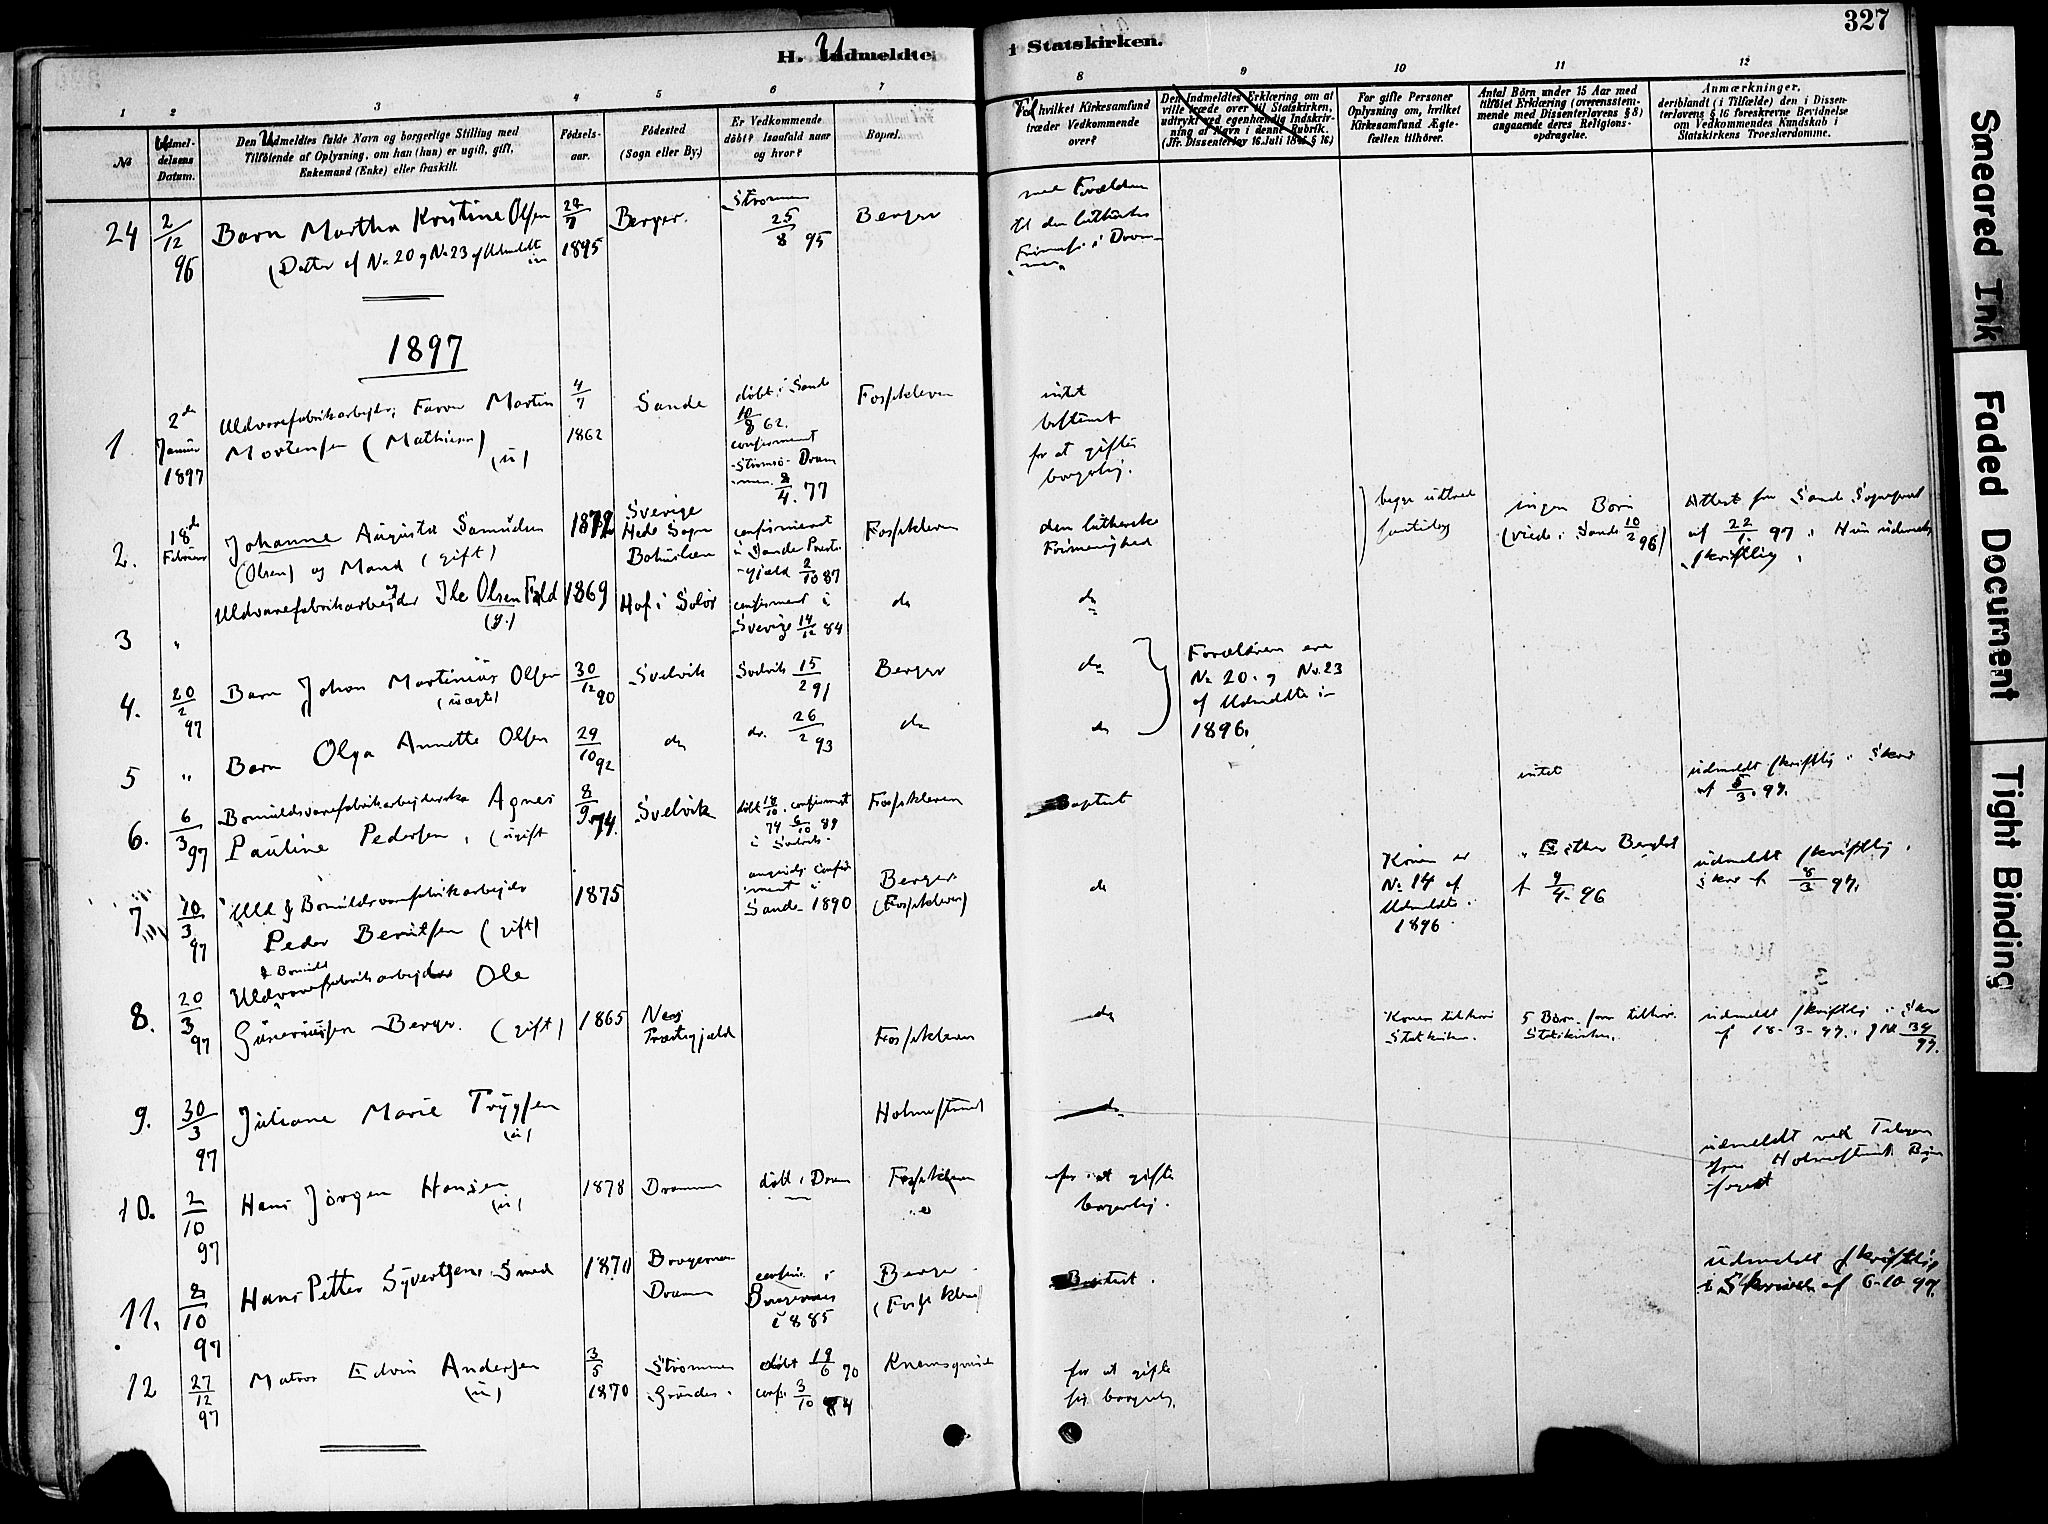 327
H. Udmeldte
i Statskirken.
1
2
3
4
5
6
7
8
9
10
11
12
№
Udmel-
delsens
Datum.
Den Udmeldtes fulde Navn og borgerlige Stilling med
Tilføiende af Oplysning, om han (hun) er ugift, gift,
Enkemand (Enke) eller fraskilt.
Fødsels-
aar.
Fødested
(Sogn eller By.)
Er Vedkommende
døbt? Isaafald naar
og hvor?
Bopæl.
Til hvilket Kirkesamfund
træder Vedkommende
over?
Den Indmeldtes Erklæring om at
ville træde over til Statskirken,
udtrykt ved egenhændig Indskriv-
ning af Navn i denne Rubrik.
(Jfr. Dissenterlov 16. Juli 1845 § 16)
For gifte Personer
Oplysning om, hvilket
Kirkesamfund Ægte-
fællen tilhører.
Antal Børn under 15 Aar med
tilføiet Erklæring (overensstem-
mende med Dissenterlovens § 8)
angaaende deres Religions-
opdragelse.
Anmærkninger,
deriblandt (i Tilfælde) den i Dissen-
terlovens § 16 foreskrevne Bevidnelse
om Vedkommendes Kundskab i
Statskirkens Troeslærdomme.
24 2/12 96 Barn Martha Kristine Olsen
(Datter af No 20 og No 23 af Udmeldte
1895 Berger. Strømmen 25/8 95 Berger
med Forældrene
til den lutherske
Frimenigh. i Dram-
men
1897
1. 2de Januar 1897 Uldvarefabrikarbeider, Farver Martin
Mortensen (Mathisen) (u)
4/7 1862 Sande døbt i Sande
10/8 62.
confirmeret
Strømsø Dram
men. 8/4. 77
Fossekleven
intet
bestemt
for at giftes
borgerlig.
2. 18de Februar Johanne Augusta Samuelsen
(Olsen) og Mand (gift)
1872 Sverige
Hede Sogn
Bohuslæn
confirmeret
i Sande Præste-
gjæld 2/10 87
Fossekleven
den lutherske
Frimenighed
begge udtraad
samtidig
ingen Børn
(viede i Sande 10/2 96)
Attest fra Sande Sognepræst
af 22/1. 97. Hun udmeldt
skriftlig.
3 " Uldvarefabrikarbeider Ole Olsen Fald
(g.)
1869 Hof i Solør confirmeret i
Sverige 14/12 84
do
do
4. 20/2 97 Barn Johan Martinius Olsen
(uægte)
30/12 90 Svelvik Svelvik 15/2 91 Berger
do
Forældrene ere
No 20. og No. 23
af Udmeldte i
1896.
5 " Barn Olga Annette Olsen
29/10 92 do do. 26/2 93 do
do
6. 6/3 97 Bomuldsvarefabrikarbeiderske Agnes
Pauline Pedersen, (ugift
8/9. 74. Svelvik døbt 18/10 74. confirmeret
6/10 89
i Svelvik.
Fossekleven
Baptist
intet
udmeldt skriftlig i Skriv
af 5/3. 97.
7 10/3 97 Uld & Bomuldsvarefabrikarbeider
Peder Berntsen (gift)
1875 angivelig confir
meret i
Sande 1890
Berger
(Fossekleven)
do
Konen er
No 14 af
Udmeldte
1896.
Esther Berglot
f 9/4 96
udmeldt skriftlig.
Skriv af 8/3 97.
8. 20/3 97 & Bomuld
Uldvarefabrikarbeider Ole
Gunerius​sen Berger. (gift)
1865 Næs
Præstegjæld
Fossekleven
do
Konen tilhører
Statskirken.
5 Børn som tilhør.
Statskirken.
udmeldt skriftlig i Skriv
af 18-3-97.
9. 30/3 97 Juliane Marie Trygsen
(u)
Holmestrand
do
udmeldt ved Telegram
fra Holmestrands By
foged
10. 2/10 97 Hans Jørgen Hansen
(u)
1878 Drammen døbt i Dram Fossekleven
for at giftes
borgerlig.
11. 8/10 97 Hans Petter Syvertsen Smed
1870 Bragernes
Dramm
confir. i
Bragernes
i 1885
Berger
(Fossekleven)
Baptist.
udmeldt skriftlig
i Skrivelse af 6-10 97.
12 27/12 97 Matros Edvin Andersen
(u)
3/5 1870 Strømmen
Grunde
døbt 19/6 70
conf. 3/10 84
Knemsgrund
for at gifte
sig borgerlig.
Smeared Ink
Faded Document
Tight Binding